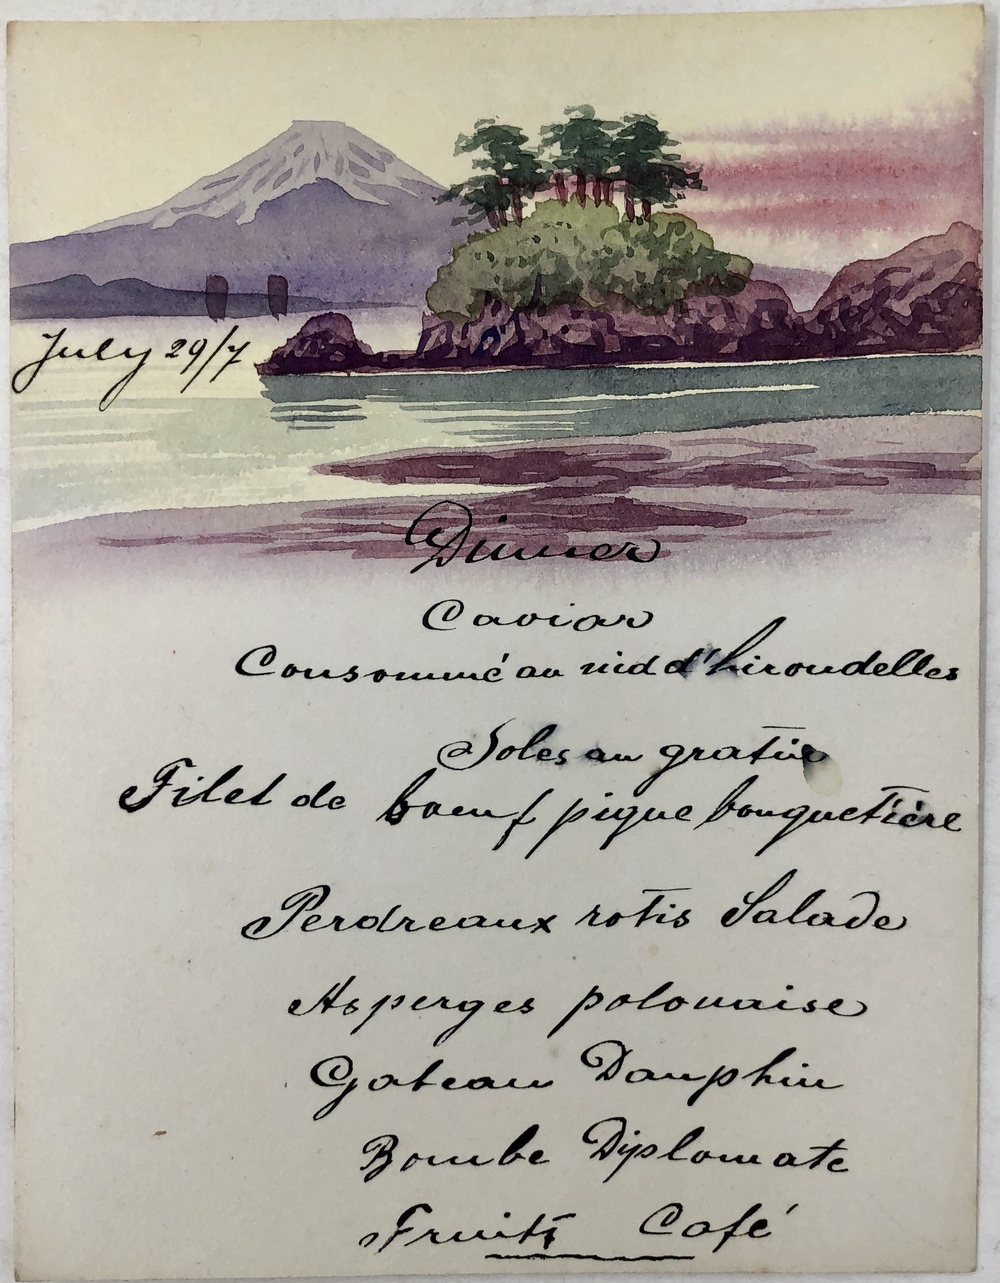 July 29/7
Dinner
Caviar
Consommé au nid d'hirondelles
Soles au gratin
Filet de boeuf pique bouquetière
Perdreaux rotis Salade
Asperges polonaise
Gateau Dauphin
Bombe Diplomate
Fruits Café